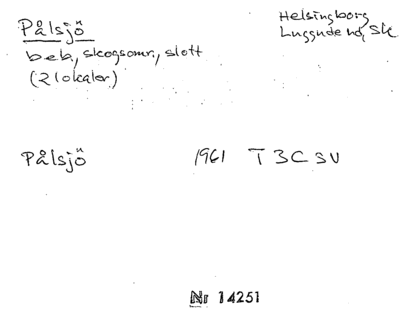 Pålsjö
Helsingborg
Luggude hd, Sk
beb., skogsomr., slott
(2 lokaler)
Pålsjö 1961 T 3C SV
Nr 14251